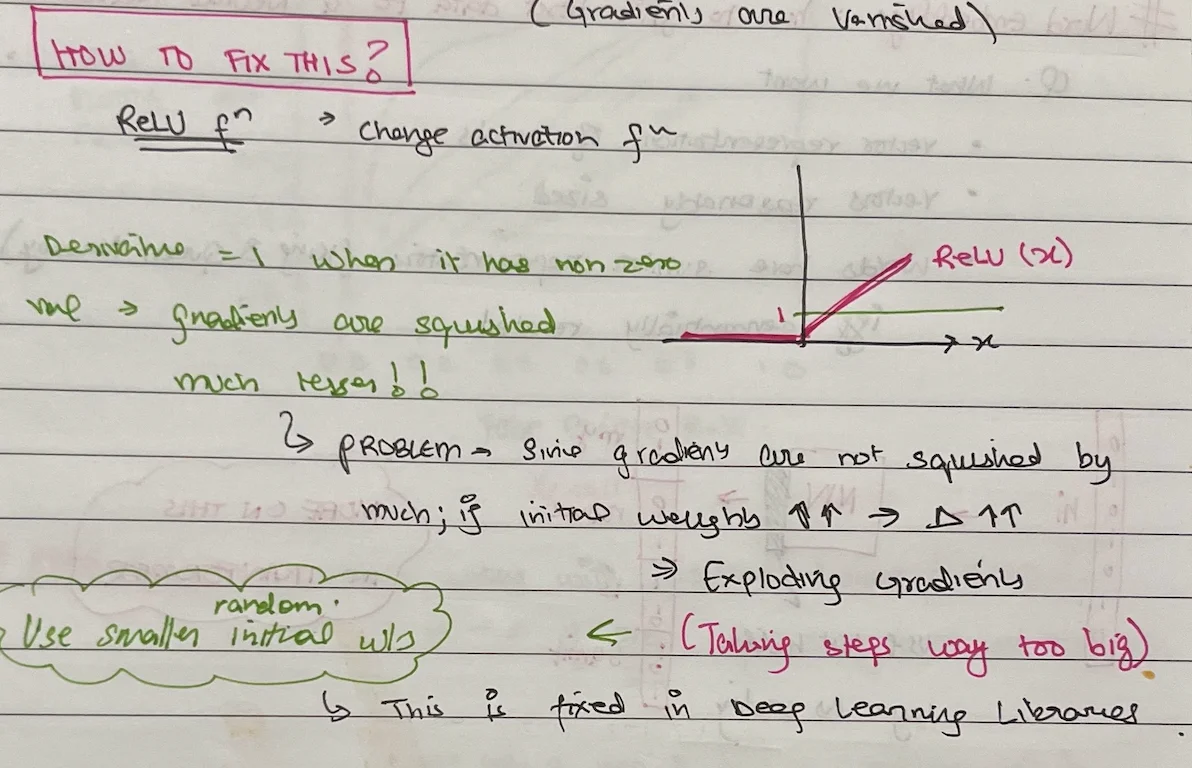 (Gradients are Vanished)
HOW TO FIX THIS?
ReLU fⁿ → Change activation fⁿ
Derivative = 1 when it has non zero
val → gradients are squished
much lesser!!
ReLU (x)
1
x
↳ PROBLEM → Since gradients are not squished by
much; if initial weights ↑↑ → Δ ↑↑
⇒ Exploding Gradients
(Taking steps way too big)
←
random
Use smaller initial wts
↳ This is fixed in Deep Learning Libraries.